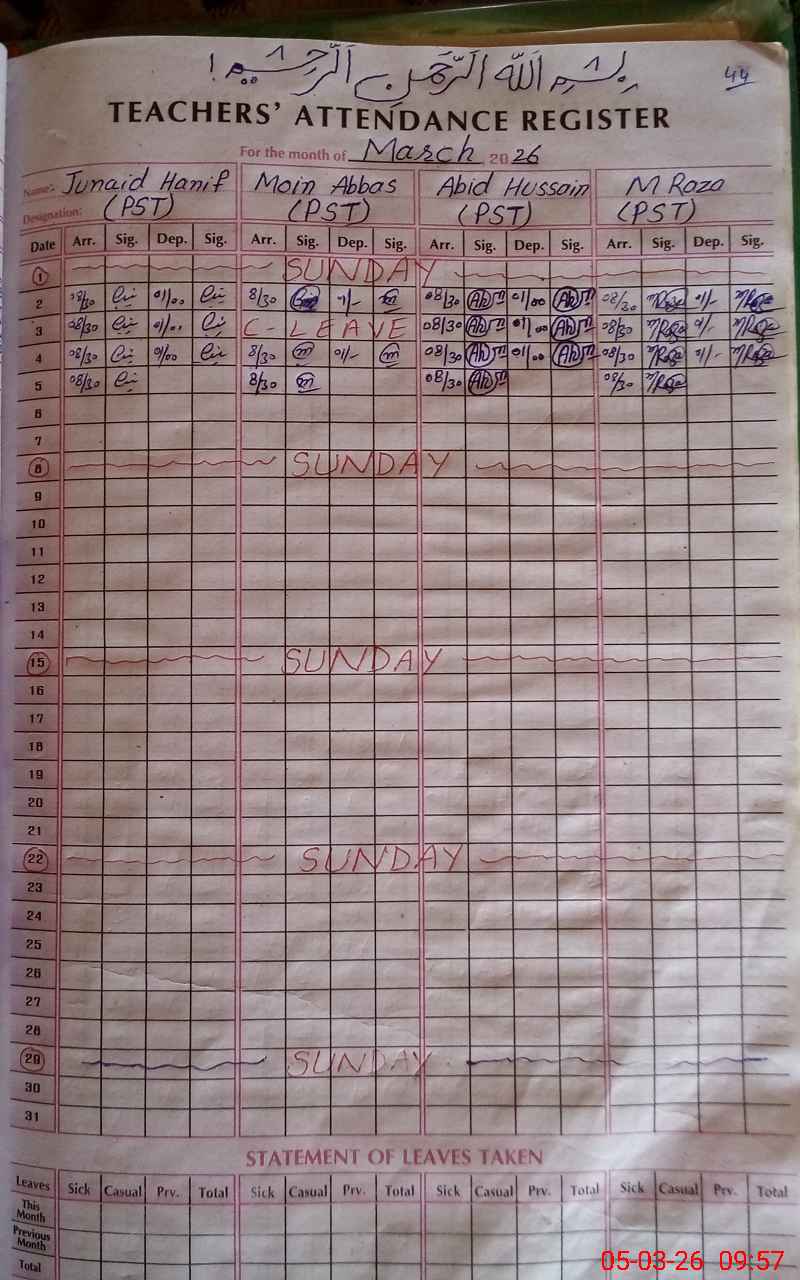 بِسْمِ اللهِ الرَّحْمٰنِ الرَّحِيْمِ !
44
TEACHERS' ATTENDANCE REGISTER
For the month of March 2026
Name: Junaid Hanif Moin Abbas Abid Hussain M Raza
Designation: (PST) (PST) (PST) (PST)
Date Arr. Sig. Dep. Sig. Arr. Sig. Dep. Sig. Arr. Sig. Dep. Sig. Arr. Sig. Dep. Sig.
1 SUNDAY
2 08/30 01/00 8/30 1/- 08/30 01/00 08/30 MRaza 01/- MRaza
3 08/30 01/00 C-LEAVE 08/30 01/00 08/30 MRaza 01/- MRaza
4 08/30 01/00 8/30 01/- 08/30 01/00 08/30 MRaza 01/- MRaza
5 08/30 8/30 08/30 08/30 MRaza
6
7
8 SUNDAY
9
10
11
12
13
14
15 SUNDAY
16
17
18
19
20
21
22 SUNDAY
23
24
25
26
27
28
29 SUNDAY
30
31
STATEMENT OF LEAVES TAKEN
Leaves Sick Casual Prv. Total Sick Casual Prv. Total Sick Casual Prv. Total Sick Casual Prv. Total
This Month
Previous Month
Total
05-03-26 09:57